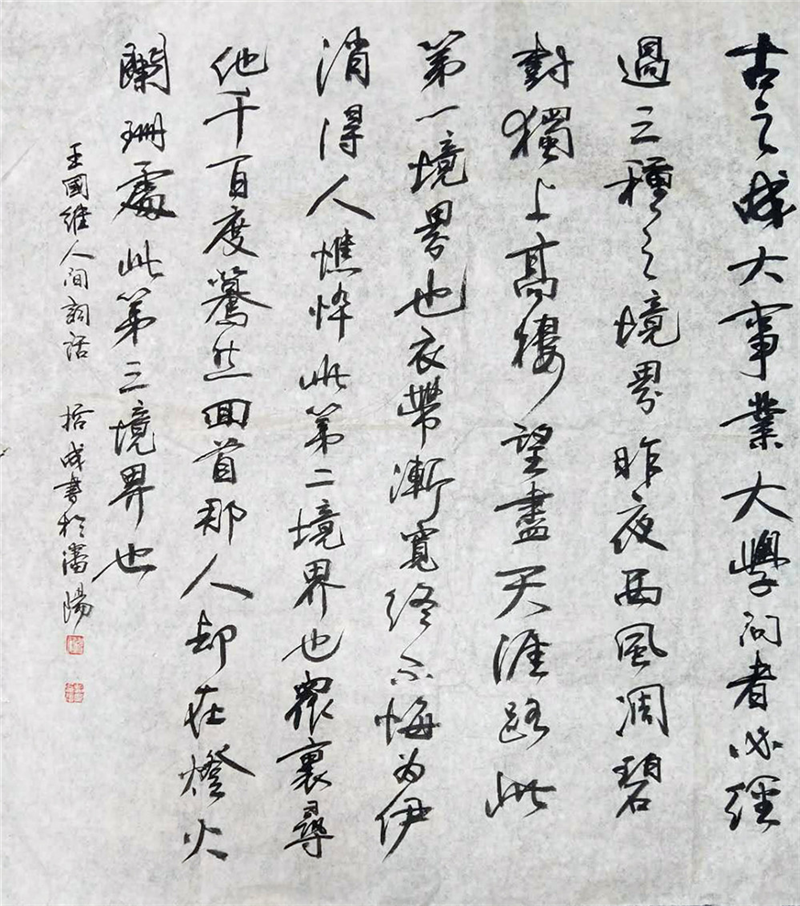 古之成大事業大學问者必經
過三種之境界昨夜西風凋碧
對獨上高樓望盡天涯路此
第一境界也衣帶漸寬終不悔为伊
消得人憔悴此第二境界也衆裏尋
他千百度驀然回首那人却在燈火
闌珊處此第三境界也
王國維人间詞话 拾成書於瀋陽